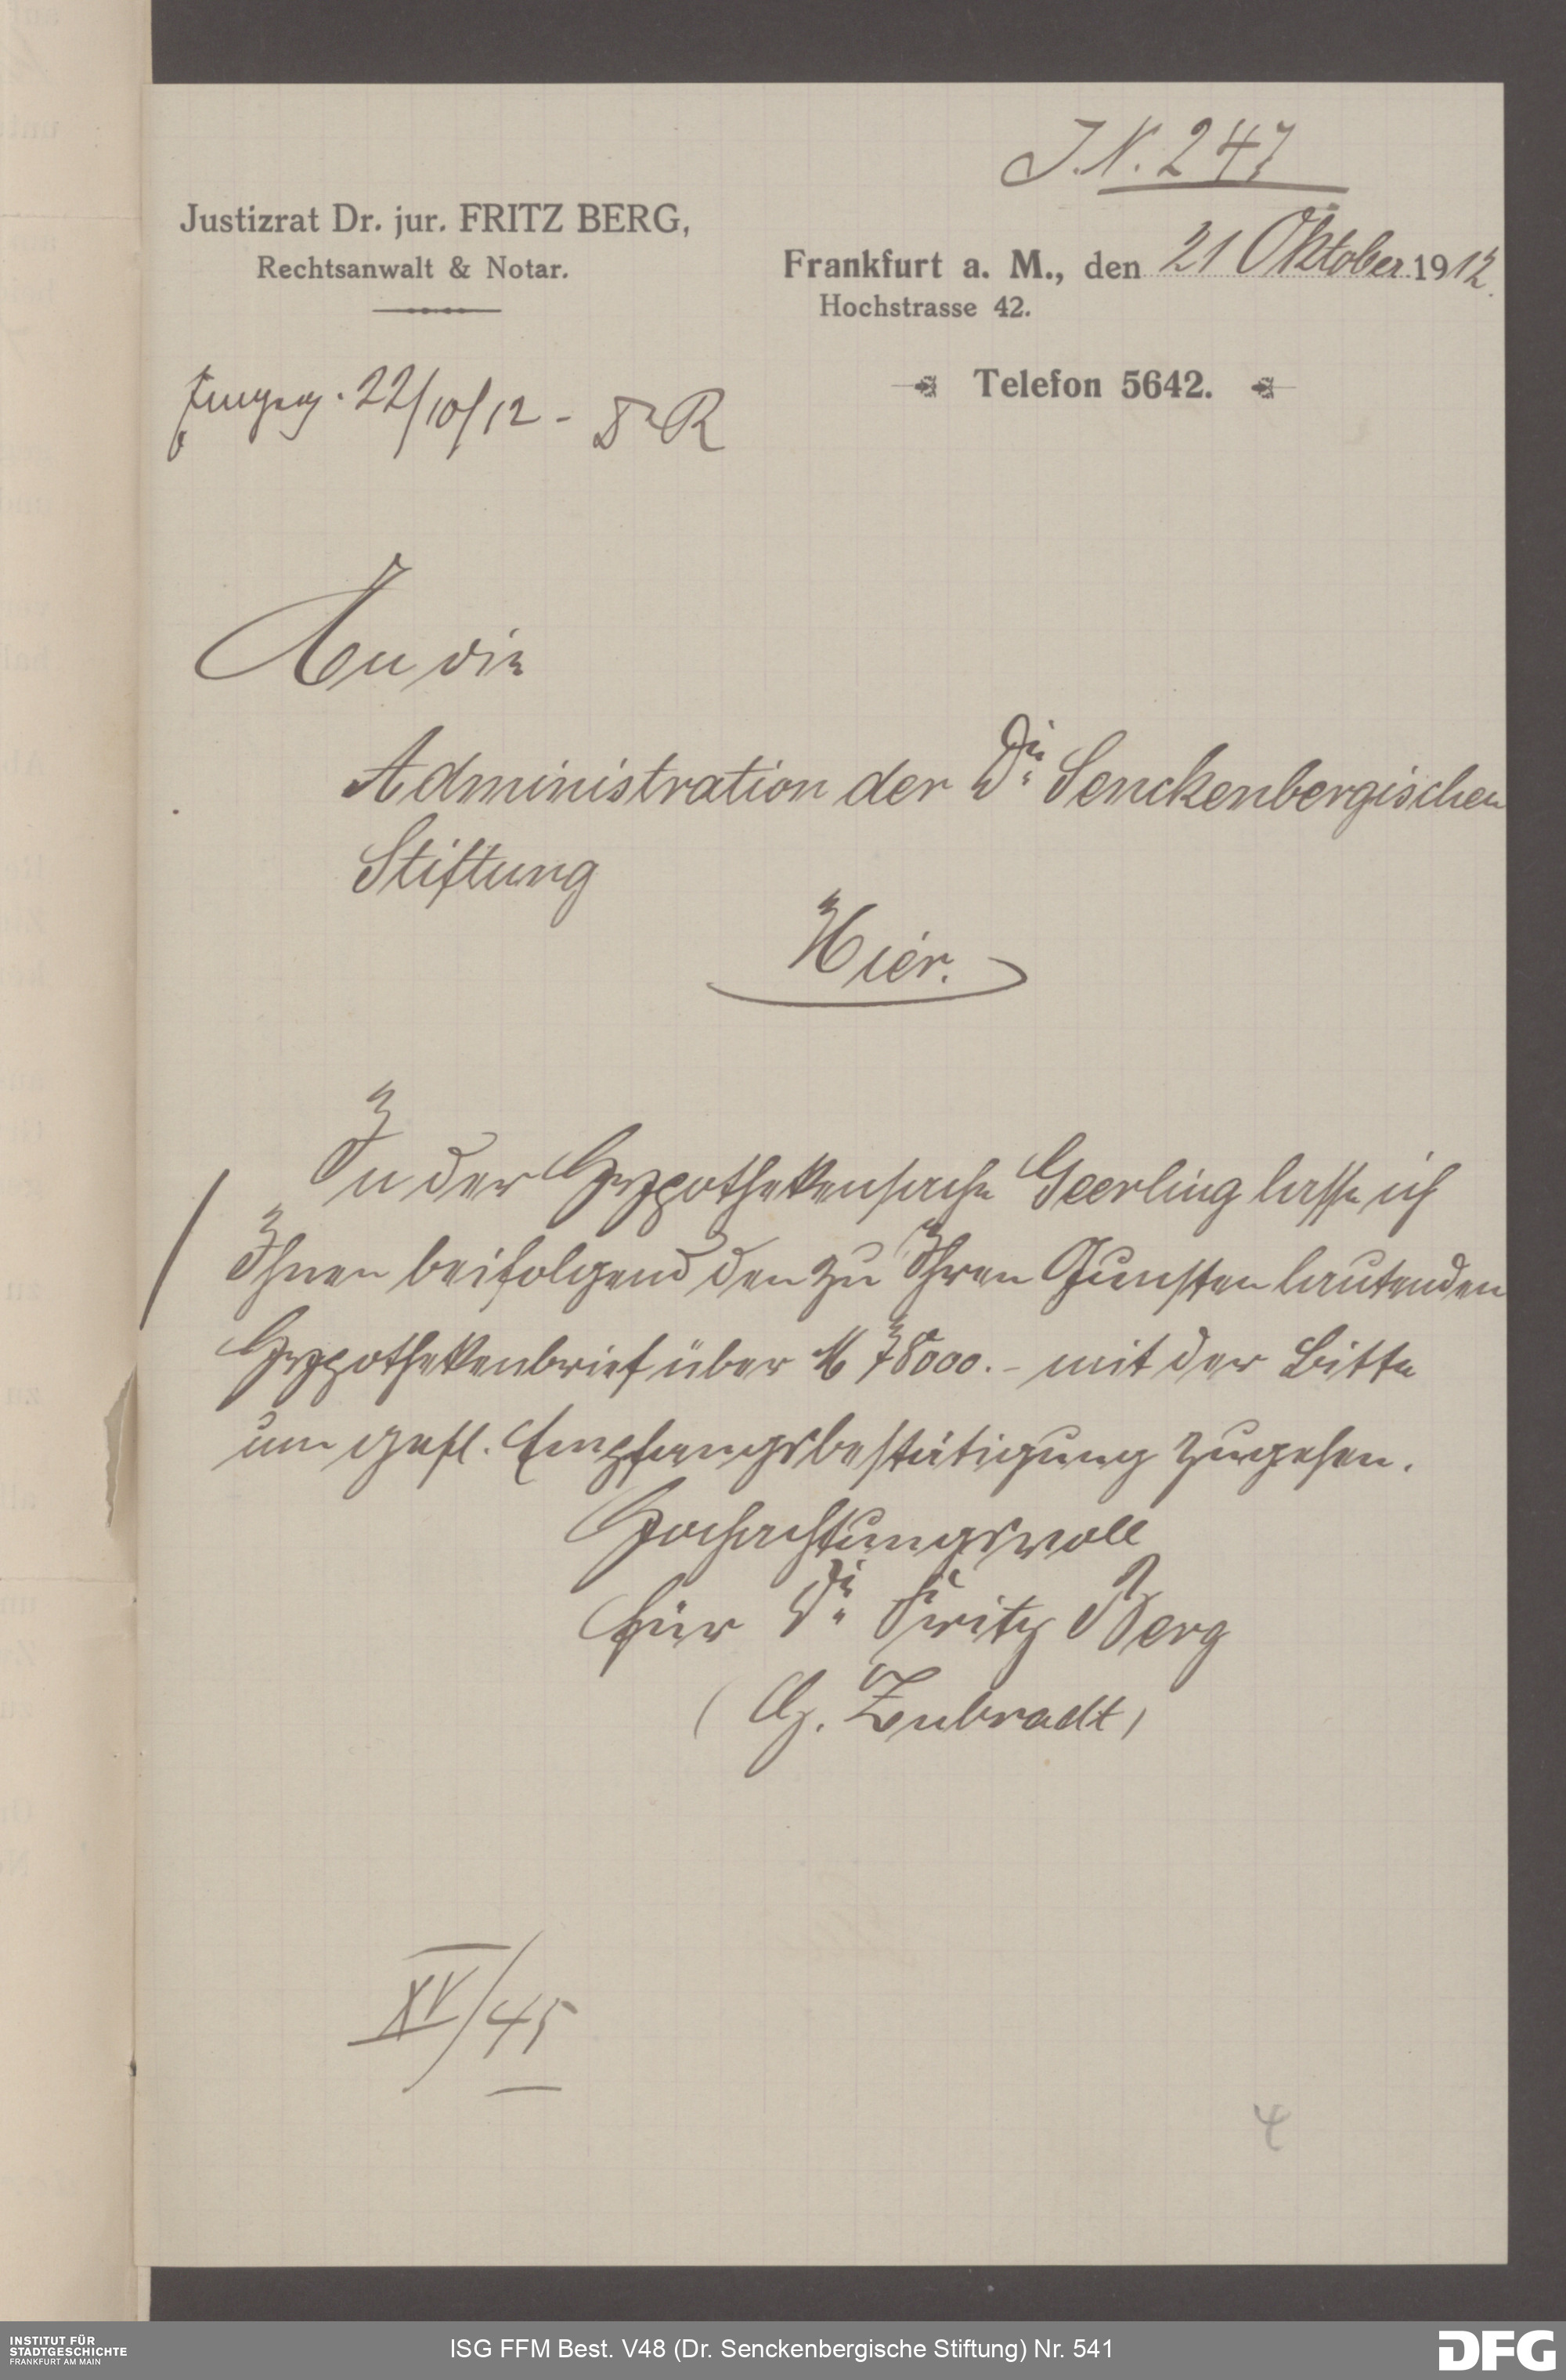 J.N. 247
Justizrat Dr. jur. FRITZ BERG,
Rechtsanwalt & Notar.
Frankfurt a. M., den 21 Oktober 1912.
Hochstrasse 42.
Telefon 5642.
22/10/12 - Dr R
An die
Administration der Dr. Senckenbergischen
Stiftung
Hier.
In der Hypothekensache Geerling lasse ich
Ihnen beifolgend den zu Ihren Gunsten lautenden
Hypothekenbrief über M 78000.- mit der Bitte
um gefl. Empfangsbestätigung zugehen.
Hochachtungsvoll
für Dr. Fritz Berg
XV/45
4
INSTITUT FÜR
STADTGESCHICHTE
FRANKFURT AM MAIN
ISG FFM Best. V48 (Dr. Senckenbergische Stiftung) Nr. 541
DFG